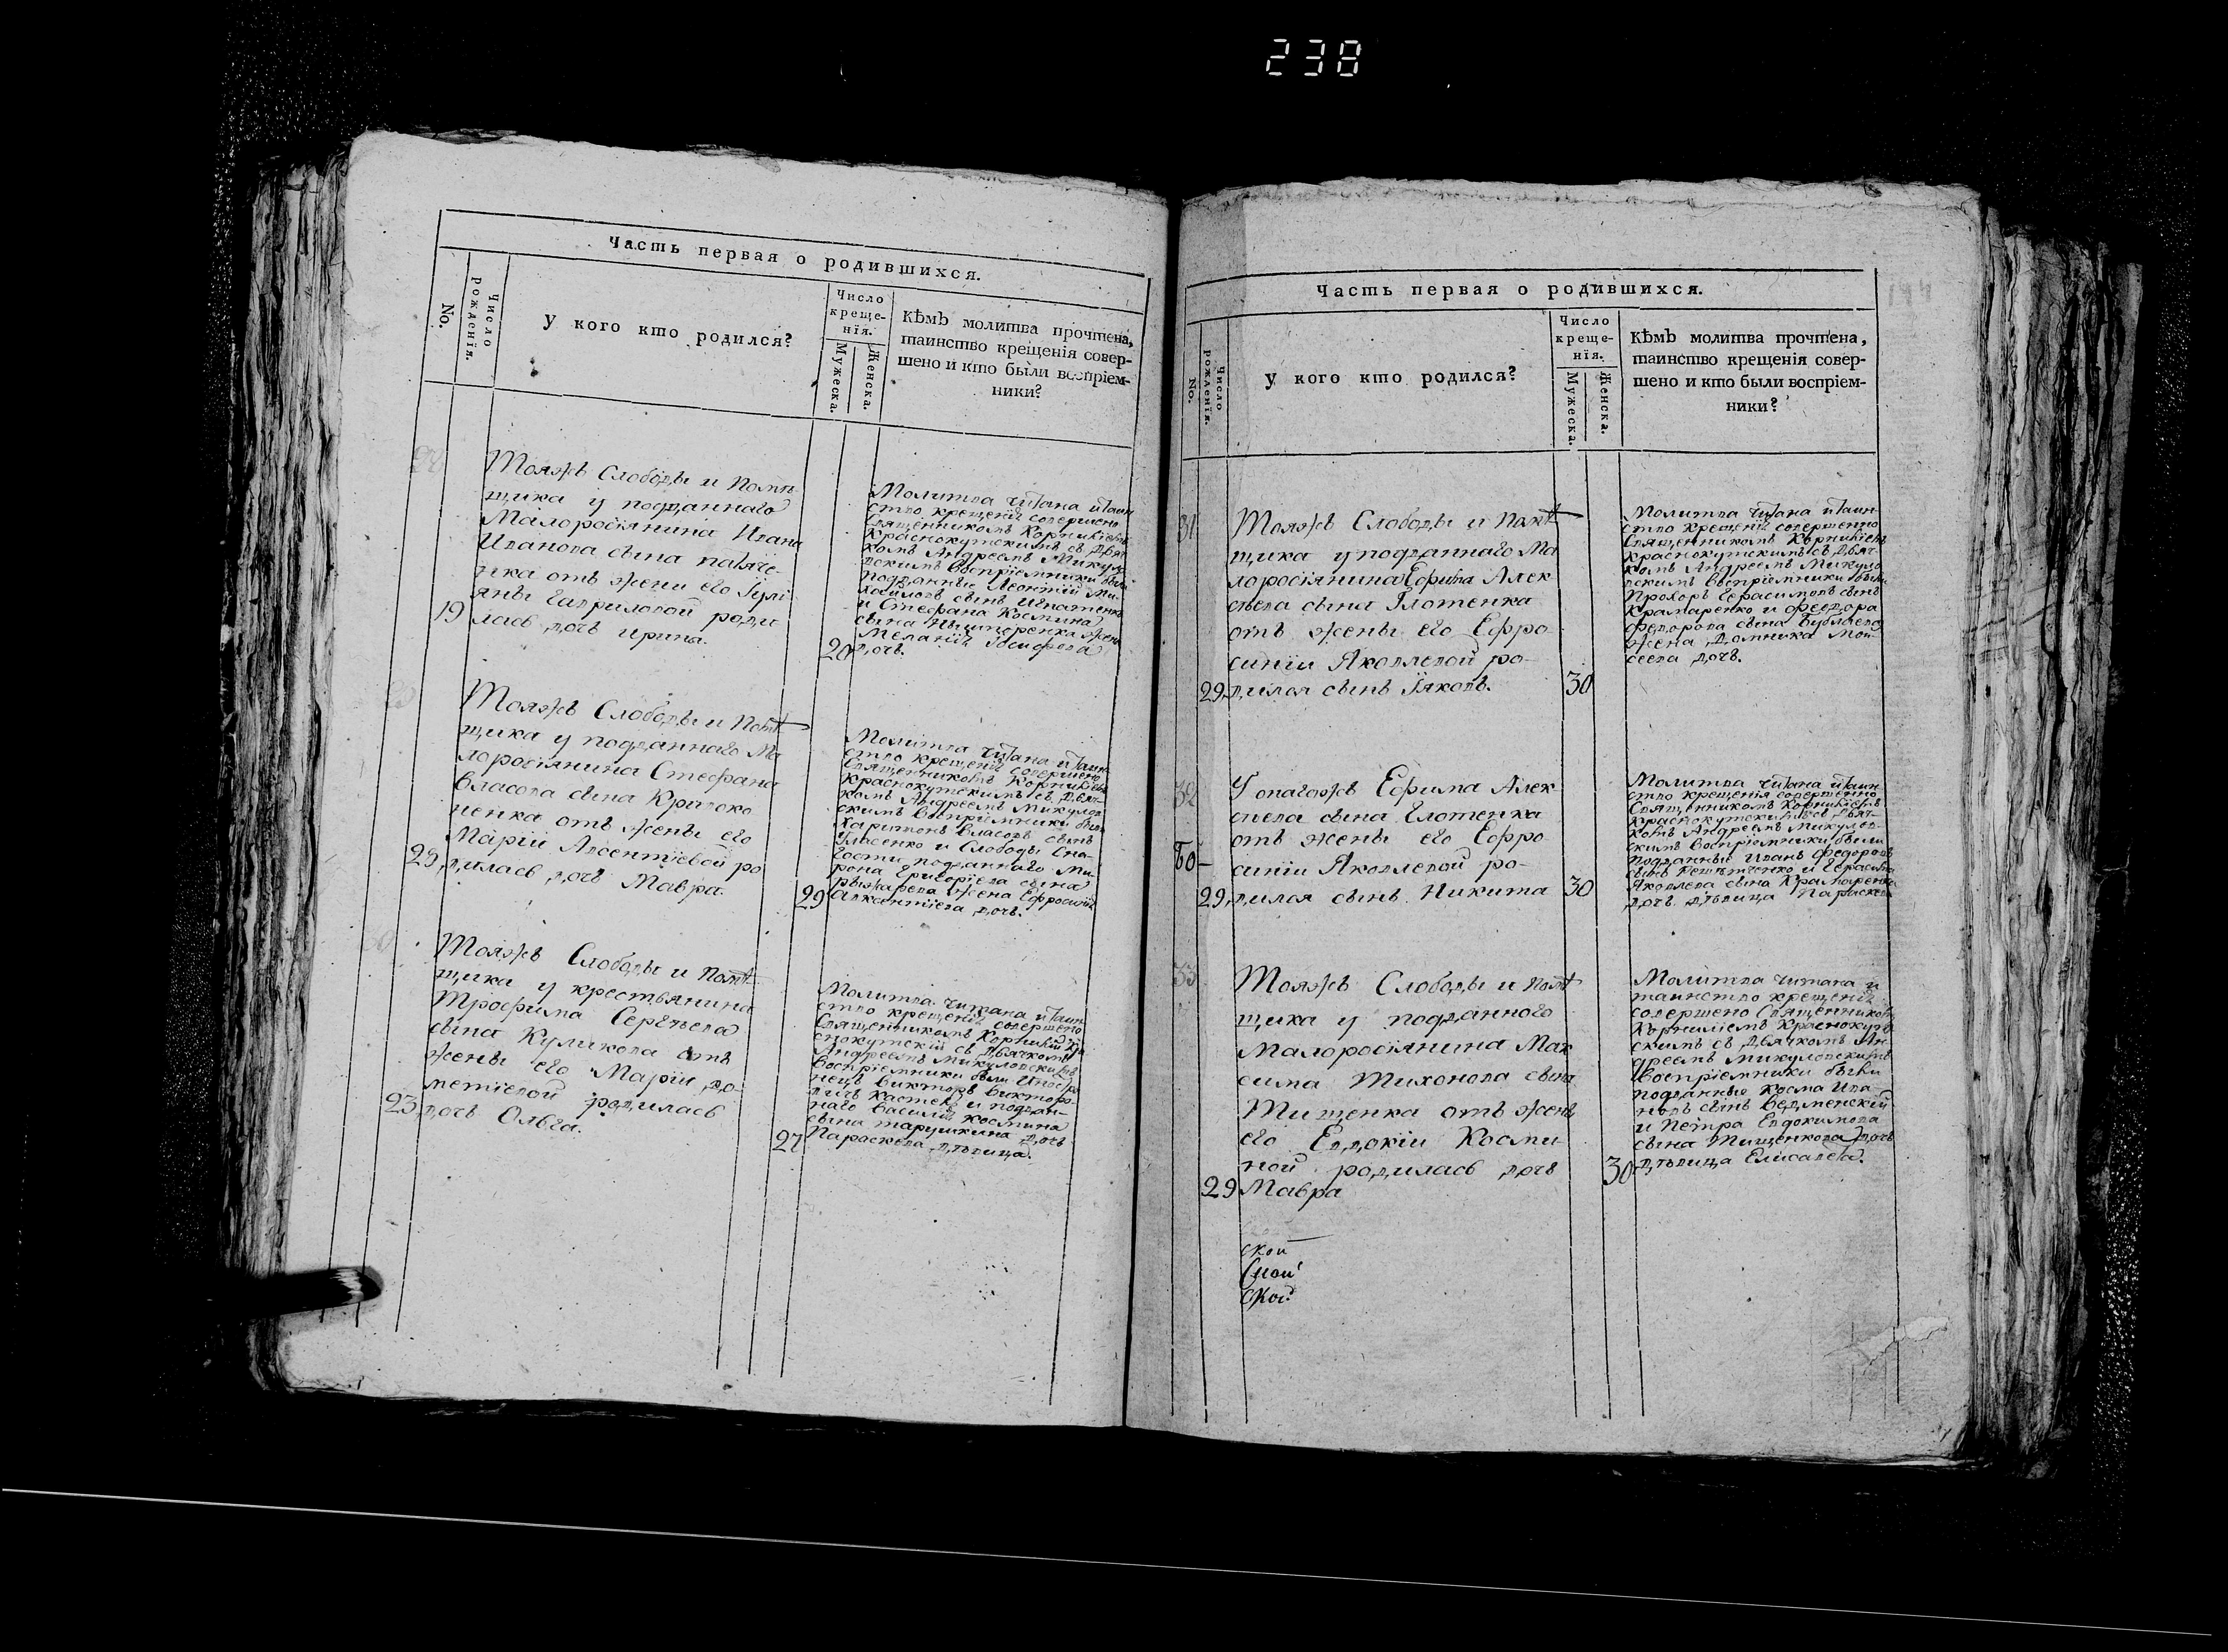 238
Часть первая о родившихся.
No.
Число рожденія.
У кого кто родился?
Число
креще-
нія.
Мужеска.
Женска.
Кѣмъ молитва прочтена,
таинство крещенія совер-
шено и кто были воспріем-
ники?
Тояжъ Слободы и Помѣ-
щика у подданнаго
Малоросіянина Ивана
Иванова сына
нка отъ жены его Іулі
яны Гавриловой роди
19 лась дочь Ирина.
20
Молитва читана и таин
ство крещенія совершено
Священникомъ Корниліемъ
Краснокутскимъ съ Дьяч
комъ Андреемъ Микуло
вскимъ воспріемники были
подданные Леонтій Ми-
хайловъ сынъ Игнатенко
и Стефана Космина
сына жена
Меланія Іосифова
дочь.
Тояжъ Слободы и Помѣ
щика у подданнаго Ма
лоросіянина Стефана
Власова сына Кривоко
ненка отъ жены его
Маріи Авсентіевой ро
29 дилась дочь Мавра.
29
Молитва читана и таин-
ство крещенія совершено
Священникомъ Корниліемъ
Краснокутскимъ съ Дьяч-
комъ Андреемъ Микулов
скимъ воспріемники были
Харитонъ Власовъ сынъ
Уласенко и Слободы Сна-
гости подданнаго Ми-
рона Григоріева сына
Рыжарева жена Ефросинія
дочь.
Тояжъ Слободы и Помѣ-
щика у крестьянина
Трофима Сергѣева
сына Куликова отъ
жены его Маріи До-
метіевой родилась
23 дочь Ольга.
27
Молитва читана и таин-
ство крещенія совершено
Священникомъ Корнилій Кра
снокутскій съ Дьячкомъ
Андреемъ Микуловскимъ
воспріемники были Иностра
нецъ Викторъ Викторо-
вичъ Кастенъ и поддан-
наго Василія Космина
сына Тарушкина дочь
Параскева дѣвица.
Часть первая о родившихся.
No.
Число рожденія.
У кого кто родился?
Число
креще-
нія.
Мужеска.
Женска.
Кѣмъ молитва прочтена,
таинство крещенія совер-
шено и кто были воспріем-
ники?
31
Тояжъ Слободы и Помѣ
щика у подданнаго Ма
лоросіянина Ефима Алек
сѣева сына Глотенка
отъ жены его Ефро
синіи Яковлевой ро-
29 дился сынъ Іаковъ.
30
Молитва читана и таин-
ство крещенія совершенно
Священникомъ Корниліемъ
Краснокутскимъ съ Дьяч-
комъ Андреемъ Микуло
вскимъ воспріемники были
Прохоръ Герасимовъ сынъ
Крамаренко и Феодора
Федорова сына
жена Домника Мои-
сеева дочь.
32
У онагожъ Ефима Алек
сѣева сына Глотенка
отъ жены его Ефро
синіи Яковлевой ро-
29 дился сынъ Никита
30
Молитва читана и таин
ство крещенія совершенно
Священникомъ Корниліемъ
Краснокутскимъ съ Дьяч-
комъ Андреемъ Микулов-
скимъ воспріемники были
подданные Иванъ Федоровъ
сынъ и Герасима
Яковлева сына Крамаренка
дочь дѣвица Параскева
33
Тояжъ Слободы и Помѣ
щика у подданного
Малоросіянина Мак
сима Тихонова сына
Тищенка отъ жены
его Евдокіи Косми
ной родилась дочь
29 Мавра
30
Молитва читана и
таинство крещенія
совершено Священникомъ
Корниліемъ Краснокут
скимъ съ Дьячкомъ Ан
дреемъ Микуловскимъ
воспріемники были
подданные Косма Ива
новъ сынъ Ведменскій
и Петра Евдокимова
сына Тищенкова дочь
дѣвица Елисавета.
ской